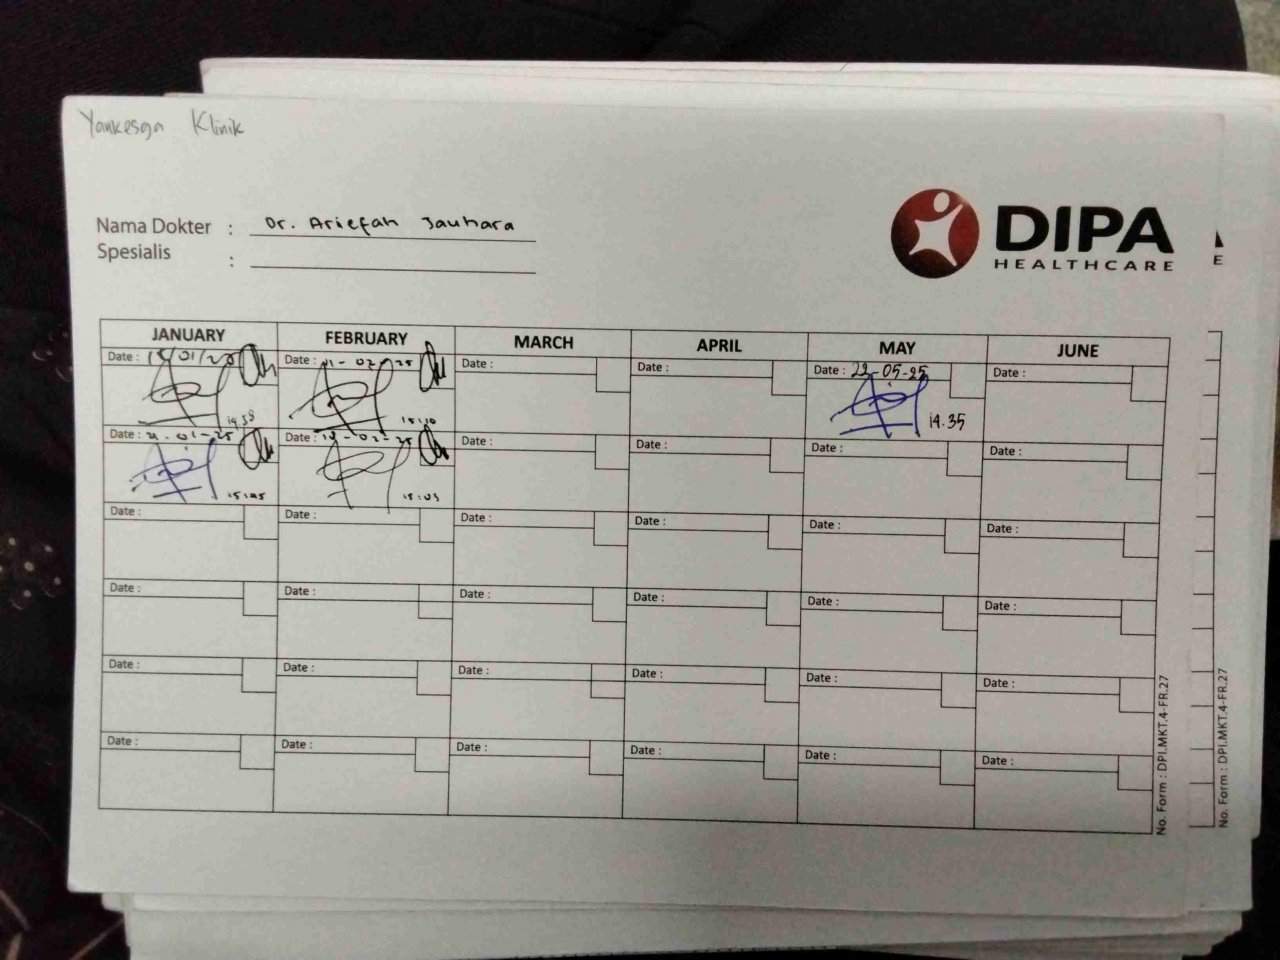 Yankesga Klinik
Nama Dokter : Dr. Ariefah Jauhara
Spesialis :
DIPA
HEALTHCARE
JANUARY FEBRUARY MARCH APRIL MAY JUNE
Date : Date : Date : Date : Date : 22-05-25 Date :
15:10 14.35
Date : Date : Date : Date : Date : Date :
15:03
Date : Date : Date : Date : Date : Date :
Date : Date : Date : Date : Date : Date :
Date : Date : Date : Date : Date : Date :
Date : Date : Date : Date : Date : Date :
No. Form : DPI.MKT.4-FR.27
No. Form : DPI.MKT.4-FR.27